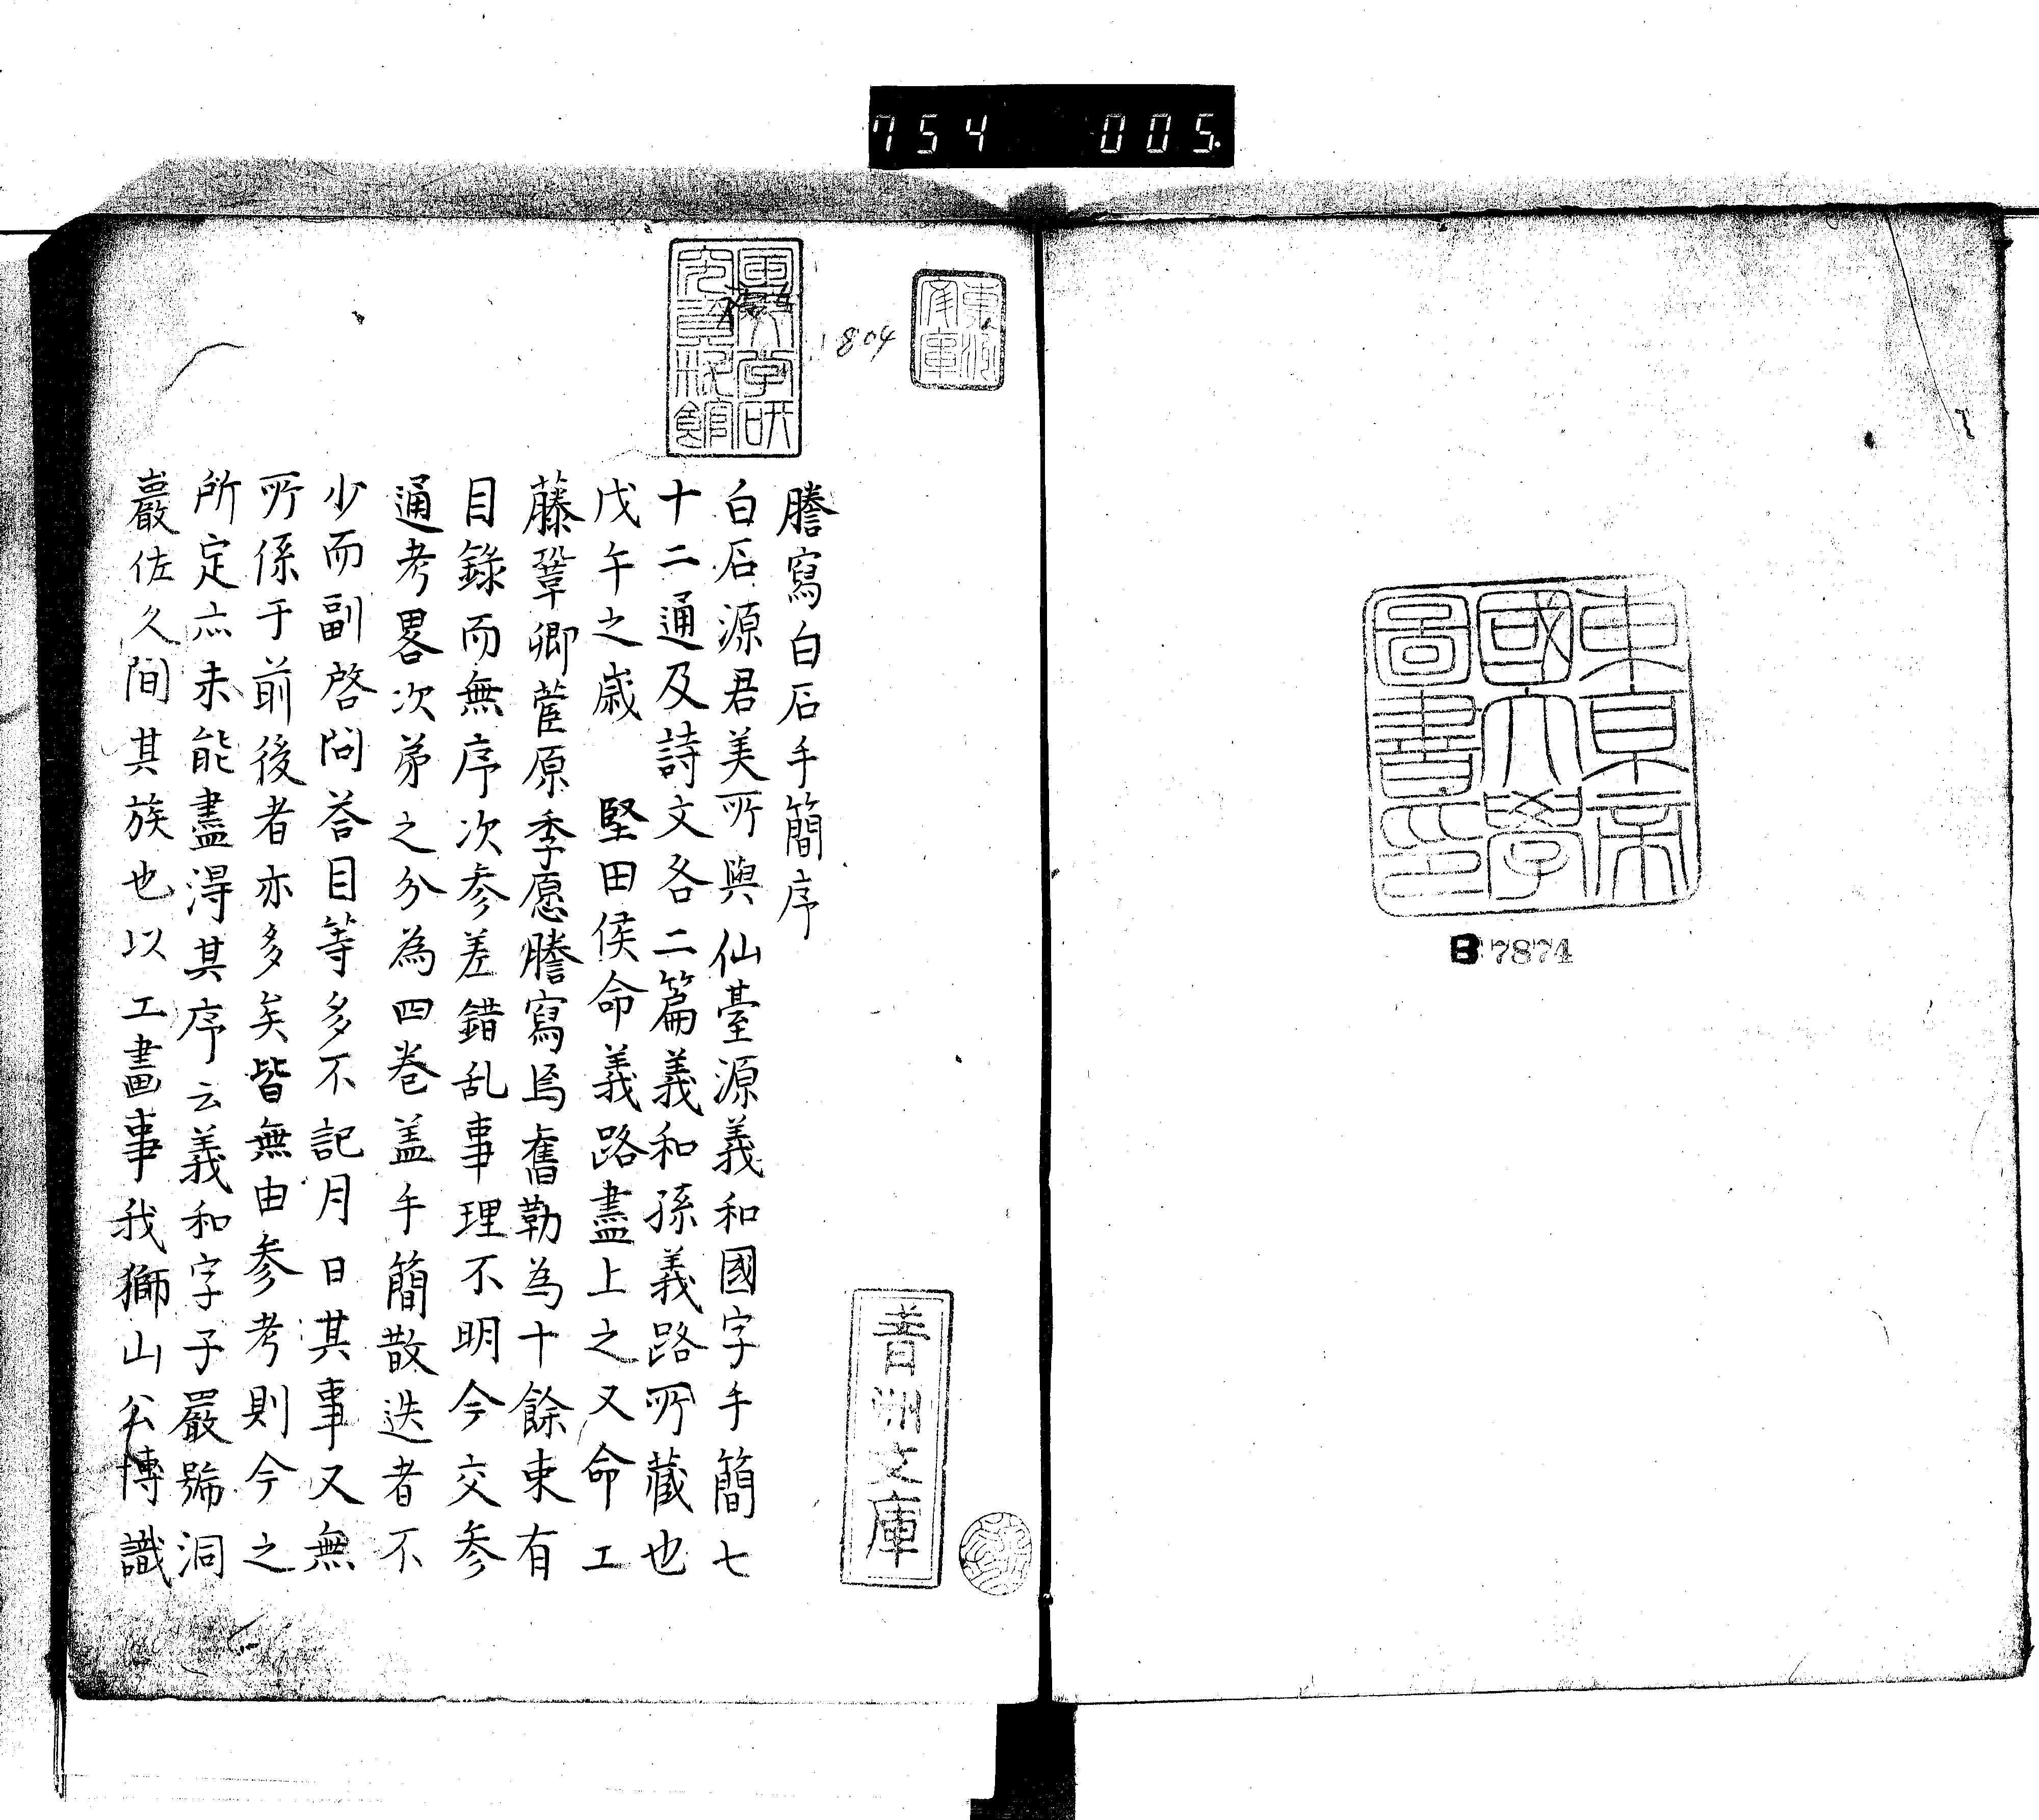 754 005
東京帝
國大學
圖書印
B 7874
青洲文庫
1804
謄寫白石手簡序
白石源君美所與仙臺源義和國字手簡七
十二通及詩文各二篇義和孫義路所藏也
戊午之歳 堅田侯命義路盡上之又命工
藤鞏卿菅原季愿謄寫焉舊勒為十餘束有
目錄而無序次参差錯乱事理不明今交参
通考畧次第之分為四巻盖手簡散迭者不
少而副啓問荅目等多不記月日其事又無
所係于前後者亦多矣皆無由参考則今之
所定亦未能盡淂其序云義和字子嚴號洞
巖佐久間其族也以工畫事我獅山公博識